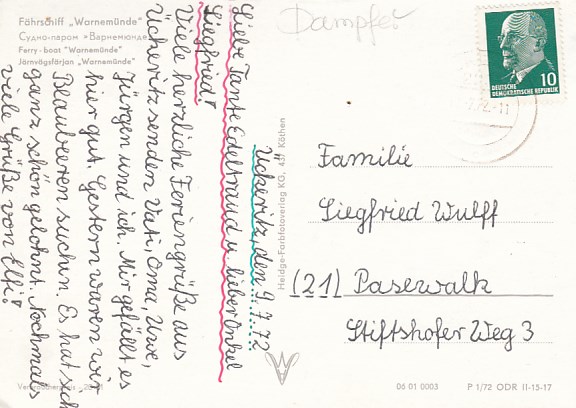 Fährschiff „Warnemünde"
Судно-паром »Варнемюнде«
Ferry-boat "Warnemünde"
Järnvägsfärjan „Warnemünde"
Dampfer
DEUTSCHE
DEMOKRATISCHE REPUBLIK
10
Ückeritz, den 9.7.72
Liebe Tante Edeltraud u. lieber Onkel
Siegfried!
Viele herzliche Feriengrüße aus
Ückeritz senden Vati, Oma, Uwe,
Jürgen und ich. Mir gefällt es
hier gut. Gestern waren wir
Beaubeeren suchen. Es hat sich
ganz schön gelohnt. Nochmals
viele Grüße von Elfi!
Heldge-Farbfotoverlag KG, 437 Köthen
Familie
Siegfried Wulff
(21) Pasewalk
Stiftshofer Weg 3
06 01 0003
P 1/72 ODR II-15-17